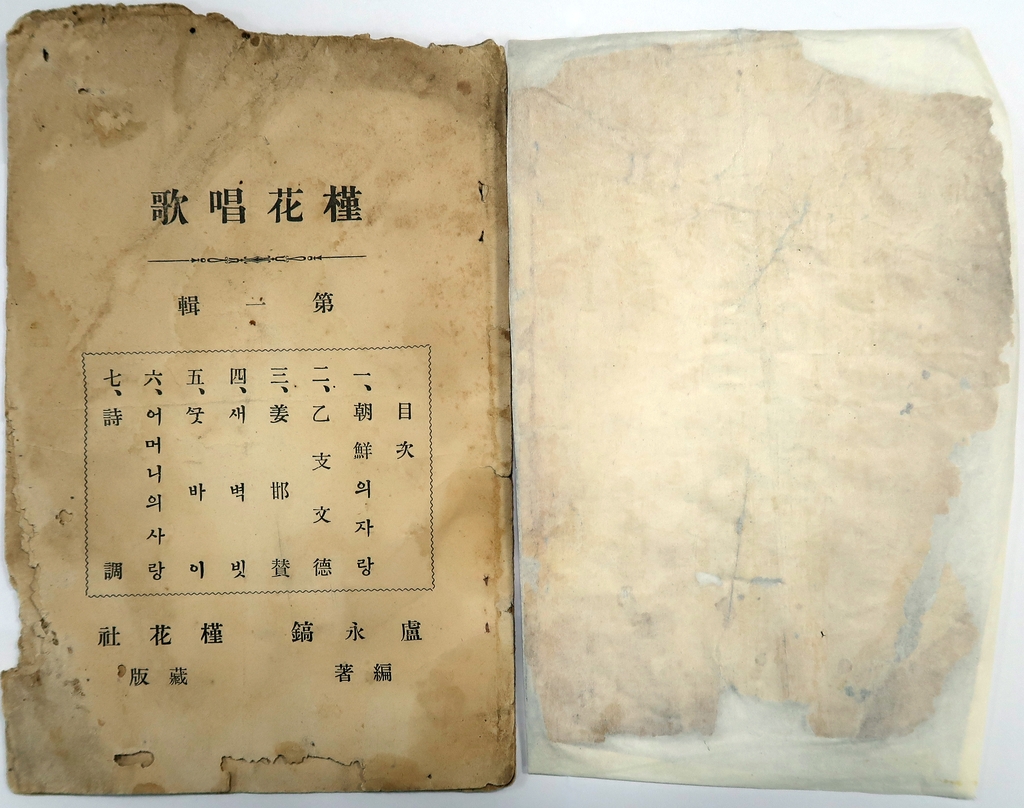 槿花唱歌
第一輯
目次
一、朝鮮의자랑
二、乙支文德
三、姜邯賛
四、새벽빗
五、ᄭᅮᆺ바이
六、어머니의사랑
七、詩調
盧永鎬
編著
槿花社
藏版